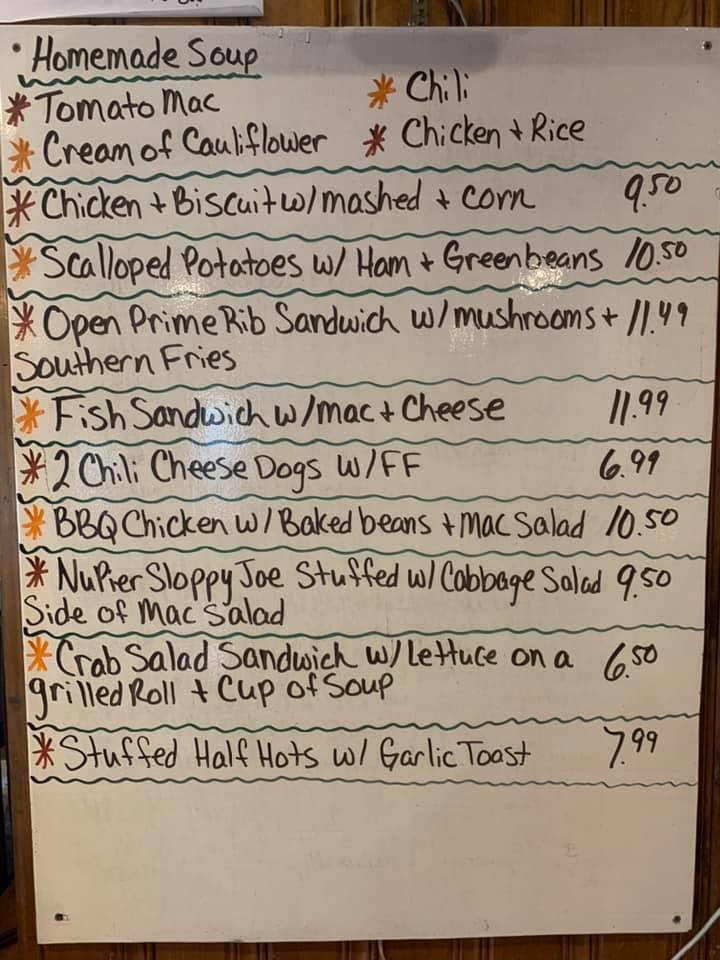 Homemade Soup
* Tomato Mac
* Chili
* Cream of Cauliflower
* Chicken + Rice
* Chicken + Biscuit w/mashed + corn 9.50
* Scalloped Potatoes w/ Ham + Greenbeans 10.50
* Open Prime Rib Sandwich w/mushrooms + 11.49
Southern Fries
* Fish Sandwich w/mac + Cheese 11.99
* 2 Chili Cheese Dogs w/FF 6.99
* BBQ Chicken w/ Baked beans + Mac Salad 10.50
* NuPier Sloppy Joe Stuffed w/ Cabbage Salad 9.50
Side of Mac Salad
* Crab Salad Sandwich w/ Lettuce on a 6.50
grilled Roll + Cup of Soup
* Stuffed Half Hots w/ Garlic Toast 7.99